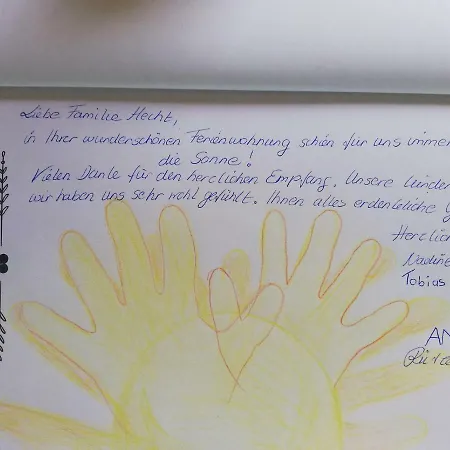 Liebe Familie Hecht,
in Ihrer wunderschönen Ferienwohnung schien für uns immer
die Sonne!
Vielen Danke für den herzlichen Empfang. Unsere Kinder
wir haben uns sehr wohl gefühlt. Ihnen alles erdenkliche
Herzlich
Nadine
Tobias
AN